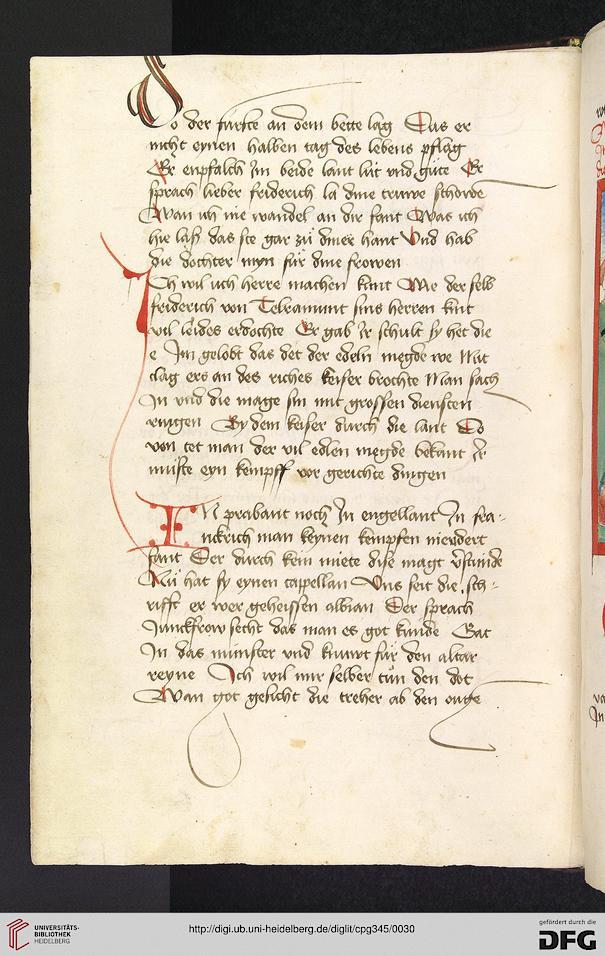 Do der furste an dem bette lag Das er
nicht eynen halben tag des lebens pflag
Er enpfalch Im beide lant lüt vnd güte Er
sprach lieber friderich la dine truwe schowe
Wan ich nie wandel an dir fant Was ich
hie laß das ste gar zü diner hant Vnd hab
die dochter myn für dine frowen
Ich wil uch herre machen kunt Wie der selb
friderich von Telramunt sins herren kint
vil leides erdochte Er gab Ir schult sy het die
e Im gelobt das det der edeln megde we Mit
clag ers an des riches keiser brochte Man sach
In vnd die mage sin mit grossen diensten
By dem keiser durch die lant Do
von tet man der vil edlen megde bekant Ir
muste eyn kempff vor gerichte dingen
IN prabant noch In engellant In fra-
nckrich man keynen kempfen niendert
fant Der durch kein miete dise magt
Nü hat sy eynen cappellan Vns seit die sch-
rifft er wer geheissen albian Der sprach
Junckfrow secht das man es got kunde Gat
In das münster vnd knuwt für den altar
reyne Ich wil mir selber tün den dot
Wan got gesicht die treher ab den ouge
UNIVERSITÄTS-
BIBLIOTHEK
HEIDELBERG
http://digi.ub.uni-heidelberg.de/diglit/cpg345/0030
gefördert durch die
DFG